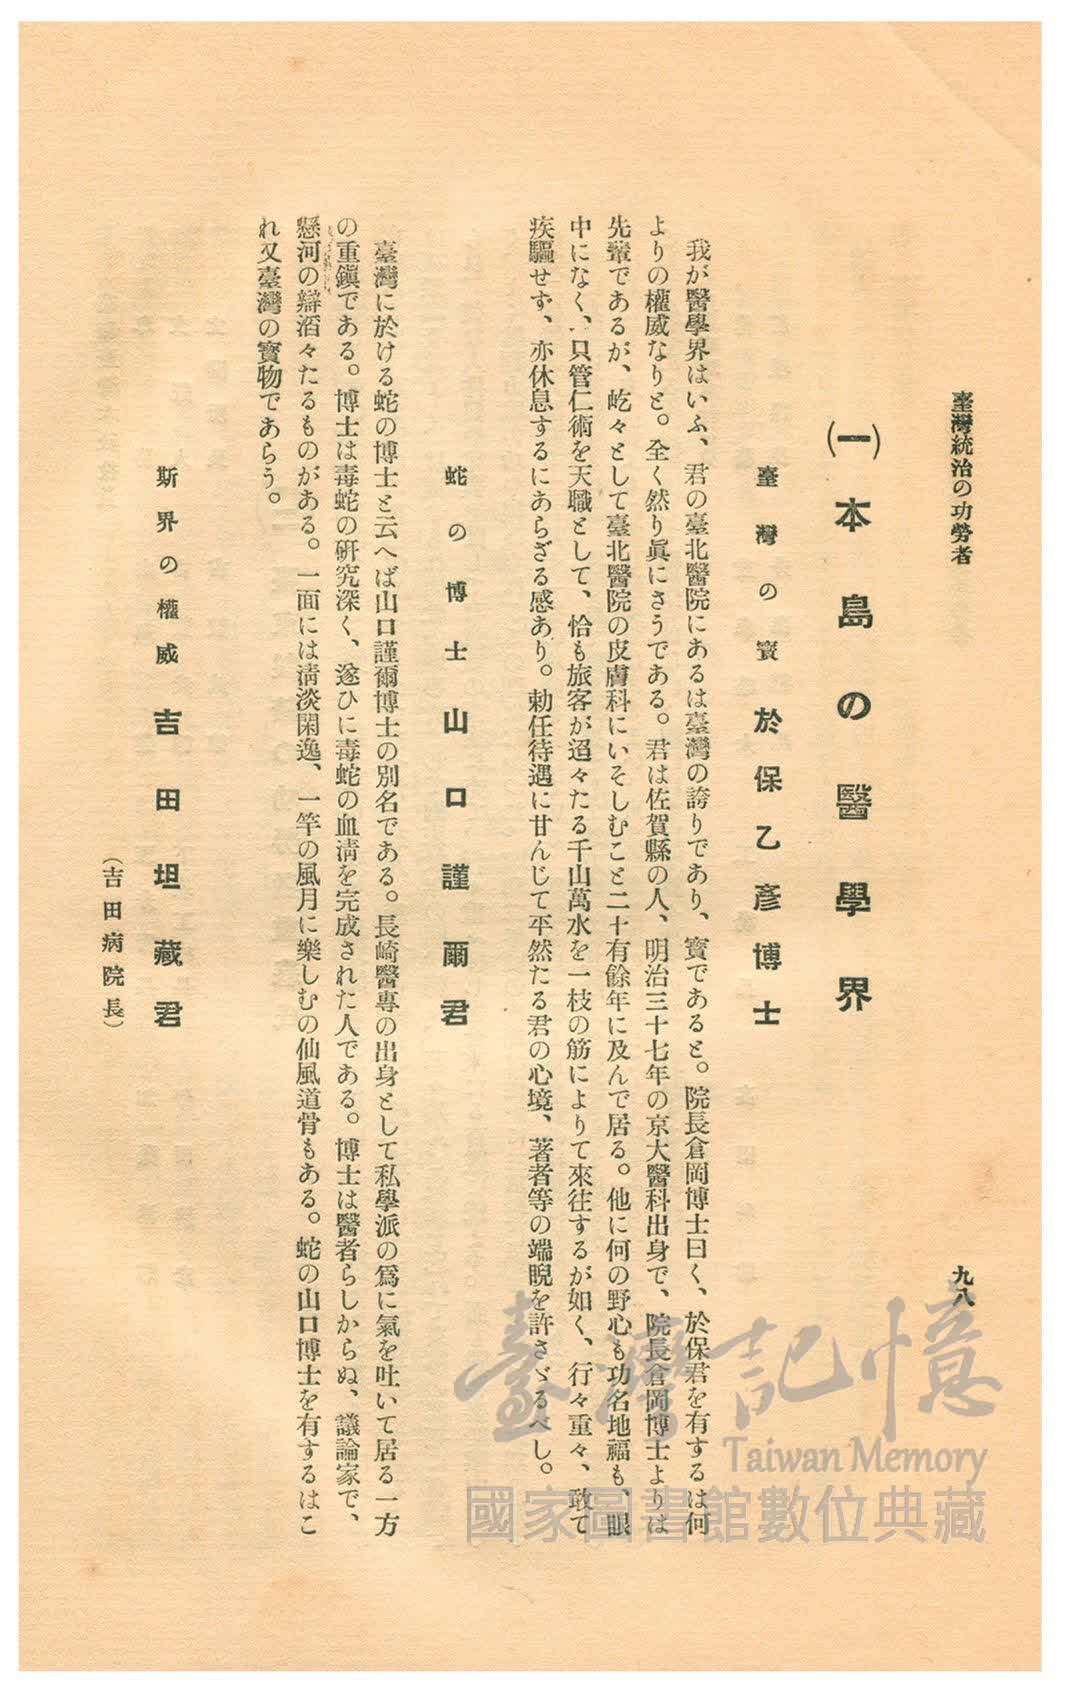 臺灣統治の功勞者
九八
(一)本島の醫學界
臺灣の寳於保乙彥博士
我が醫學界はいふ、君の臺北醫院にあるは臺灣の誇りであり、寳であると。院長倉岡博士曰く、於保君を有するは何
よりの權威なりと。全く然り眞にさうである。君は佐賀縣の人、明治三十七年の京大醫科出身で、院長倉岡博士よりは
先輩であるが、屹々として臺北醫院の皮膚科にいそしむこと二十有餘年に及んで居る。他に何の野心も功名地福も、眼
中になく、只管仁術を天職として、恰も旅客が迢々たる千山萬水を一枝の筋によりて來往するが如く、行々重々、敢て
疾驅せず、亦休息するにあらざる感あり。勅任待遇に甘んじて平然たる君の心境、著者等の端睨を許さゞるべし。
蛇の博士山口謹爾君
臺灣に於ける蛇の博士と云へば山口謹爾博士の別名である。長崎醫專の出身として私學派の爲に氣を吐いて居る一方
の重鎭である。博士は毒蛇の硏究深く、遂ひに毒蛇の血淸を完成された人である。博士は醫者らしからぬ、議論家で、
懸河の辯滔々たるものがある。一面には淸淡閑逸、一竿の風月に樂しむの仙風道骨もある。蛇の山口博士を有するはこ
れ又臺灣の寳物であらう。
斯界の權威吉田坦藏君
(吉田病院長)
臺灣記憶
Taiwan Memory
國家圖書館數位典藏